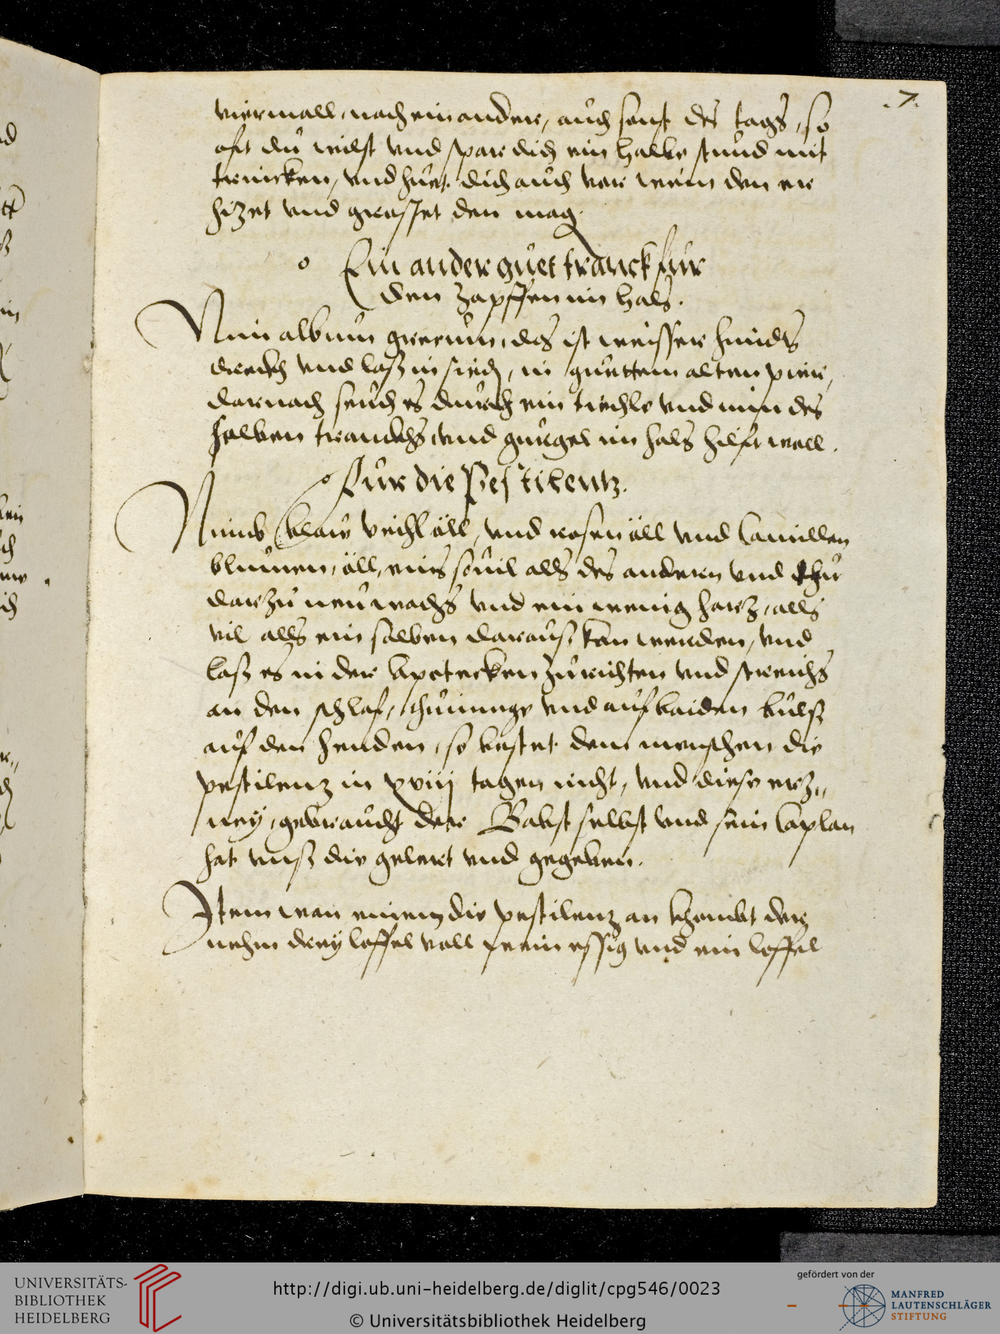 .7.
viermall, nach ein ander, auch sonst des tags, so
oft du wilst vnd spar dich ein halbe stund mit
trincken, vnd huet dich auch vor wein den er
hizet vnd den mag
Ein ander guet tranck für
den zapffen im hals.
Nim album grecum, das ist weisser hundts
dreckh vnd laß in sieden, in guettem alten pier,
darnach seuch es durch ein tiechle vnd nim des
selben tranckhs, vnd gurgel im hals hilfft woll.
Für die Pestilentz.
Nimb blaw veichl öll, vnd rosen öll vnd Camillen
bluemen, öll, eins souil alls des andern vnd thu
darzu neu wachs vnd ein wenig harz, alls
vil alls ein salben darauß kan werden, vnd
laß es in der Apotecken zurichten vnd streichs
an den schlaf, vnd auf baiden bulß
auf den henden, so bestet dem menschen die
pestilenz in xviij tagen nicht, vnd diese erz„
ney, gebraucht der Babst selbst vnd sein Caplan
hat vnß die gelert vnd gegeben.
Item wan einem die pestilenz an khombt der
nehm drey löffel voll wein essig vnd ein löffel
UNIVERSITÄTS-
BIBLIOTHEK
HEIDELBERG
http://digi.ub.uni-heidelberg.de/diglit/cpg546/0023
© Universitätsbibliothek Heidelberg
gefördert von der
MANFRED
LAUTENSCHLÄGER
STIFTUNG